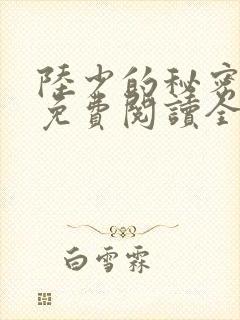 陸少的秘密
免費閱讀全
白雪霖